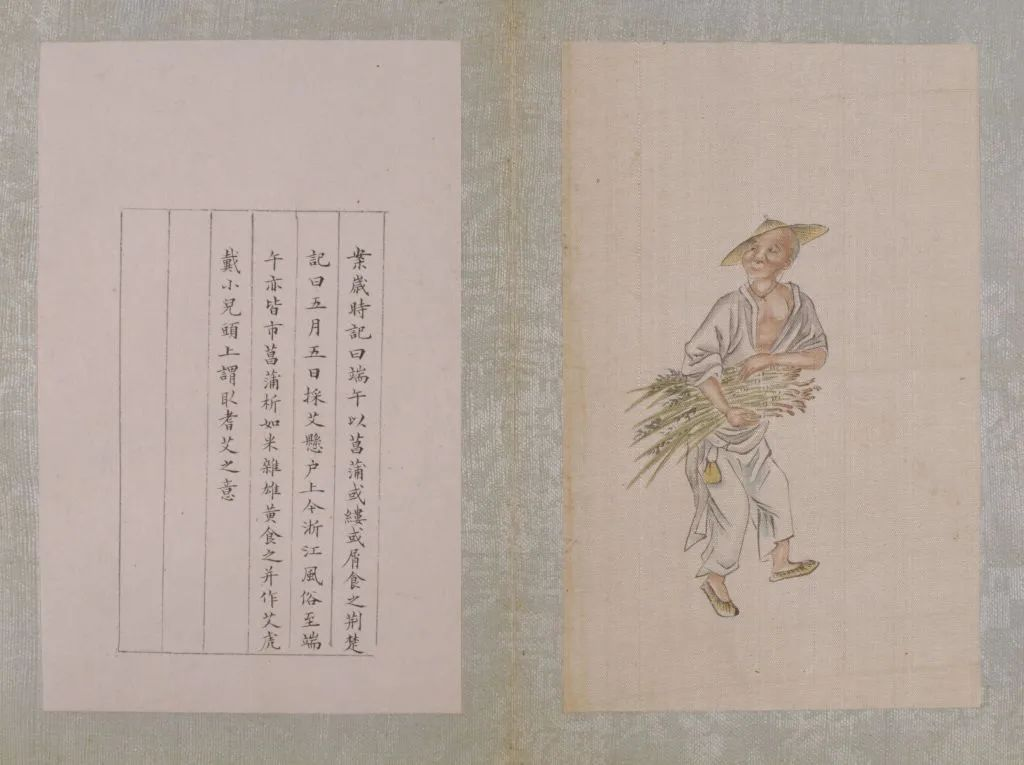 案歲時記曰端午以菖蒲或縷或屑食之荆楚
記曰五月五日採艾懸户上今浙江風俗至端
午亦皆市菖蒲析如米雜雄黄食之并作艾虎
戴小兒頭上謂取耆艾之意